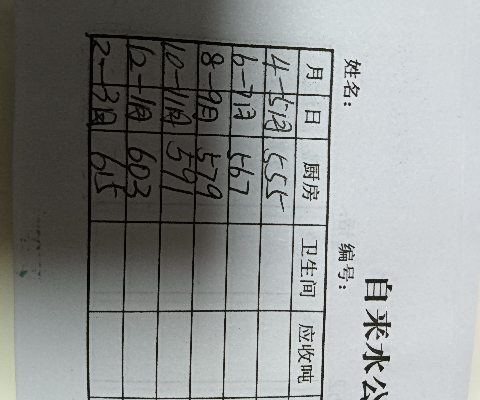 自来水公
姓名： 编号：
月 日 厨房 卫生间 应收吨
4-5月 555
6-7月 567
8-9月 579
10-11月 591
12-1月 603
2-3月 615